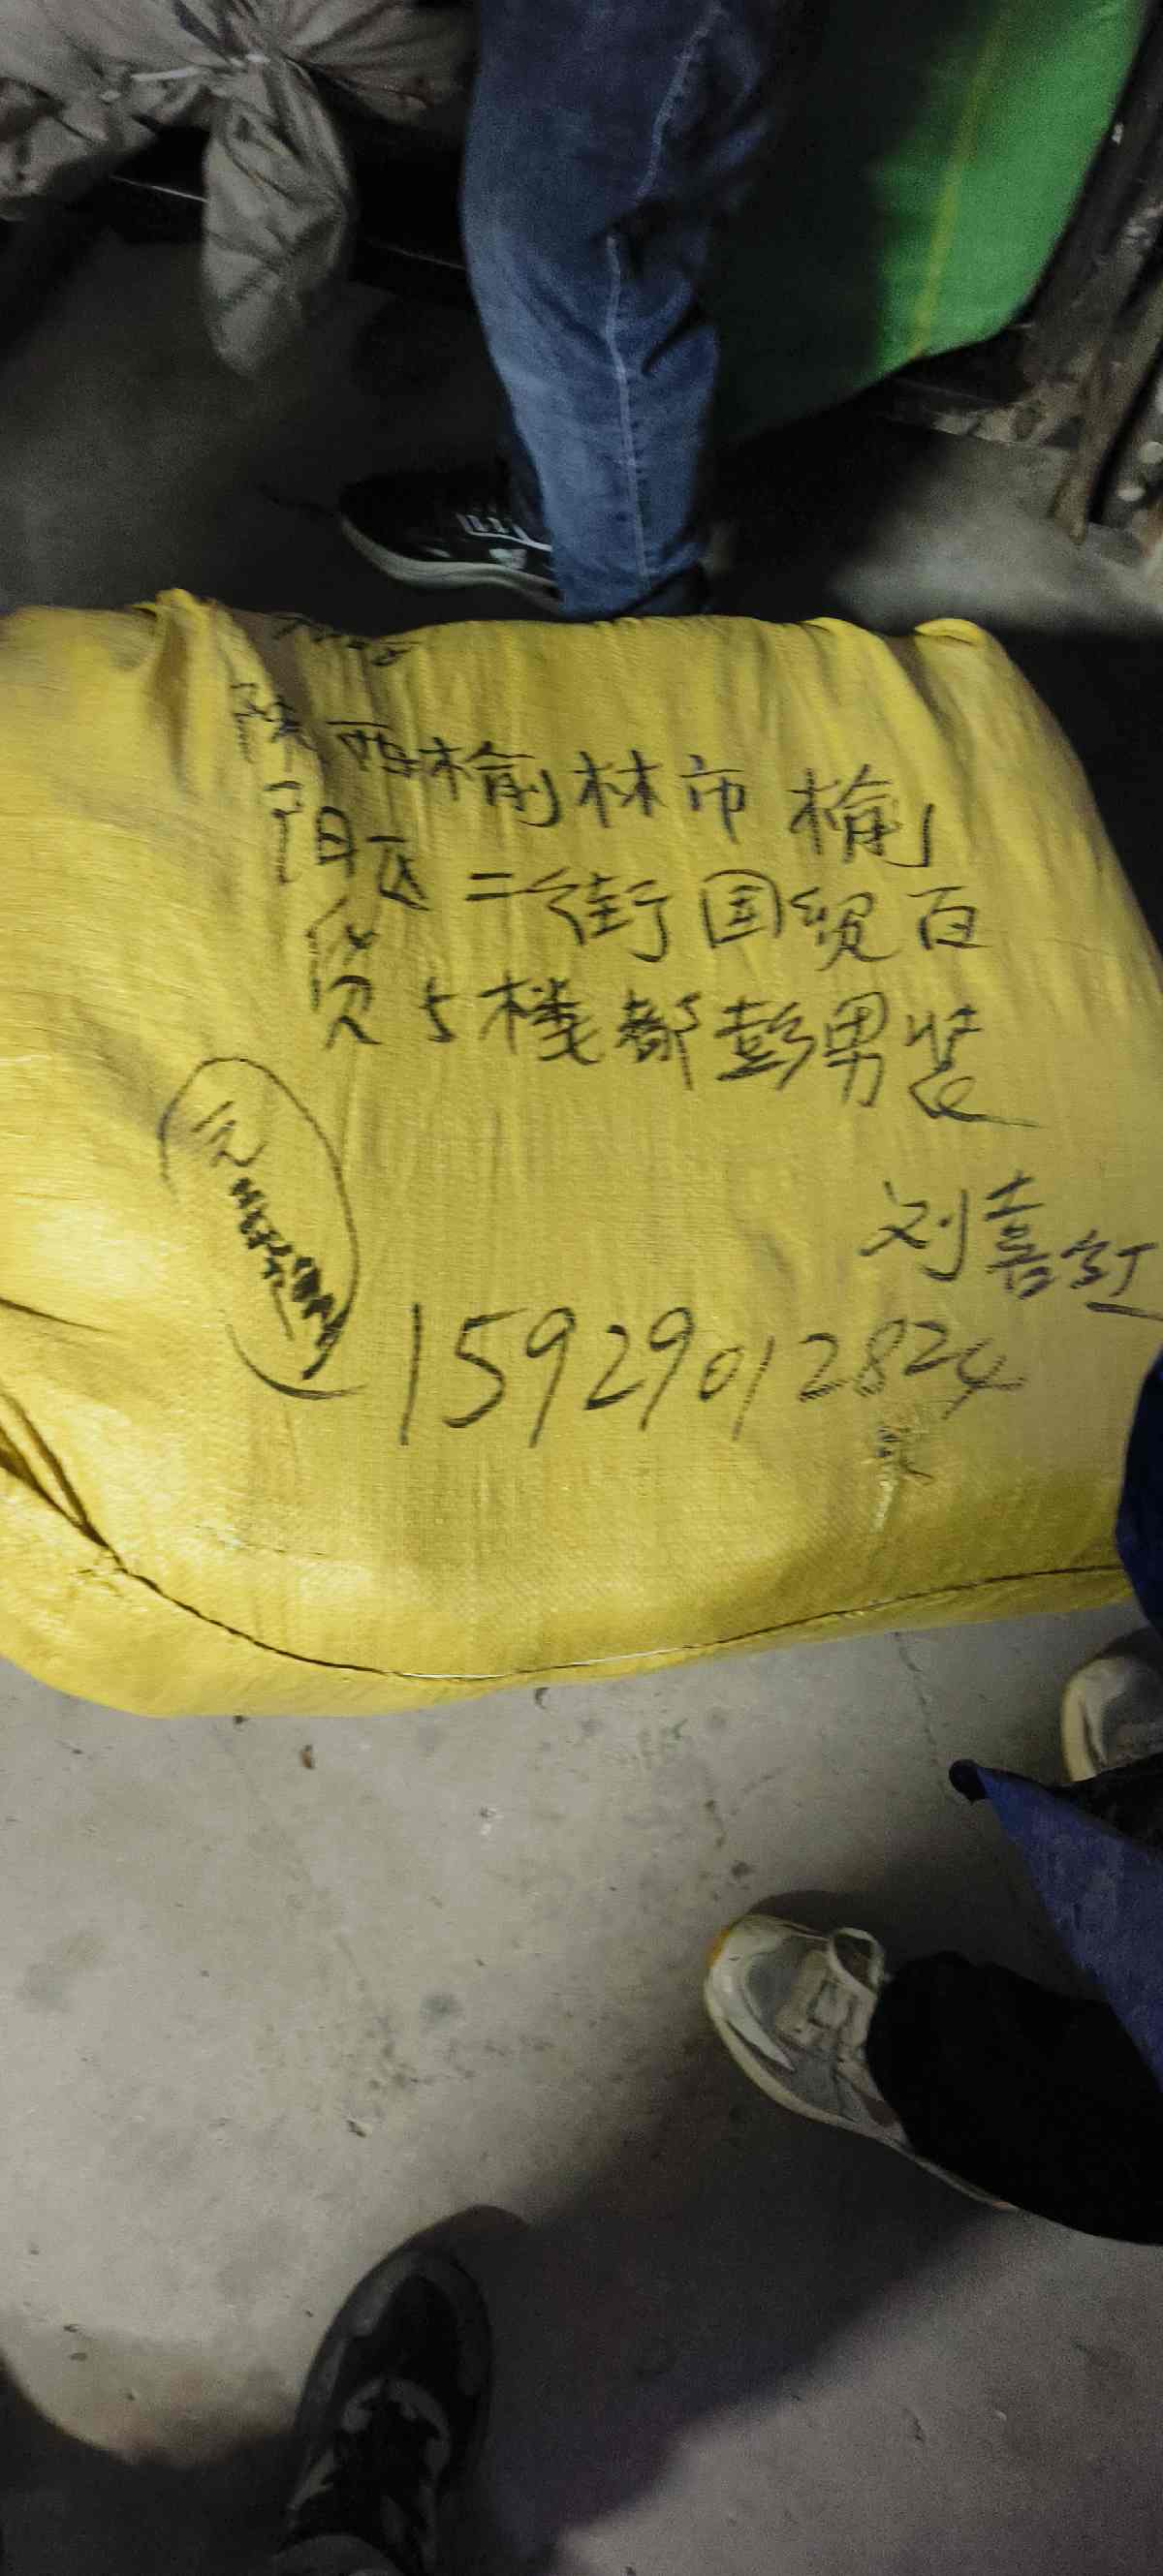 陕西榆林市榆
阳区二街国贸百
货5楼都彭男装
刘喜红
15929012824